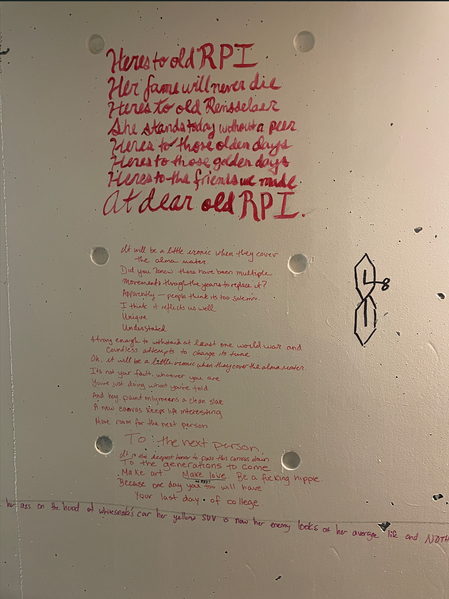 Heres to old RPI
Her fame will never die
Heres to old Rensselaer
She stands today without a peer
Heres to those olden days
Heres to those golden days
Heres to the friends we made
At dear old RPI.
It will be a little ironic when they cover
the alma mater
Did you know there have been multiple
movements through the years to replace it?
Apparently - people think its too solemn
I think it reflects us well
Unique
Understated
Strong enough to withstand at least one world war and
countless attempts to change its tune
Oh, it will be a little ironic when they cover the alma mater
Its not your fault, whoever you are
Youre just doing what you're told
And hey, paint means a clean slate
A new canvas keeps life interesting
More room for the next person
To: the next person
It is my deepest honor to pass this canvas down
To the generations to come
Make art Make love Be a fucking hippie
Because one day you too will have
Your last day of college
8
her ass on the hood of car her yellow SUV is now her enemy looks at her average life and NOTH